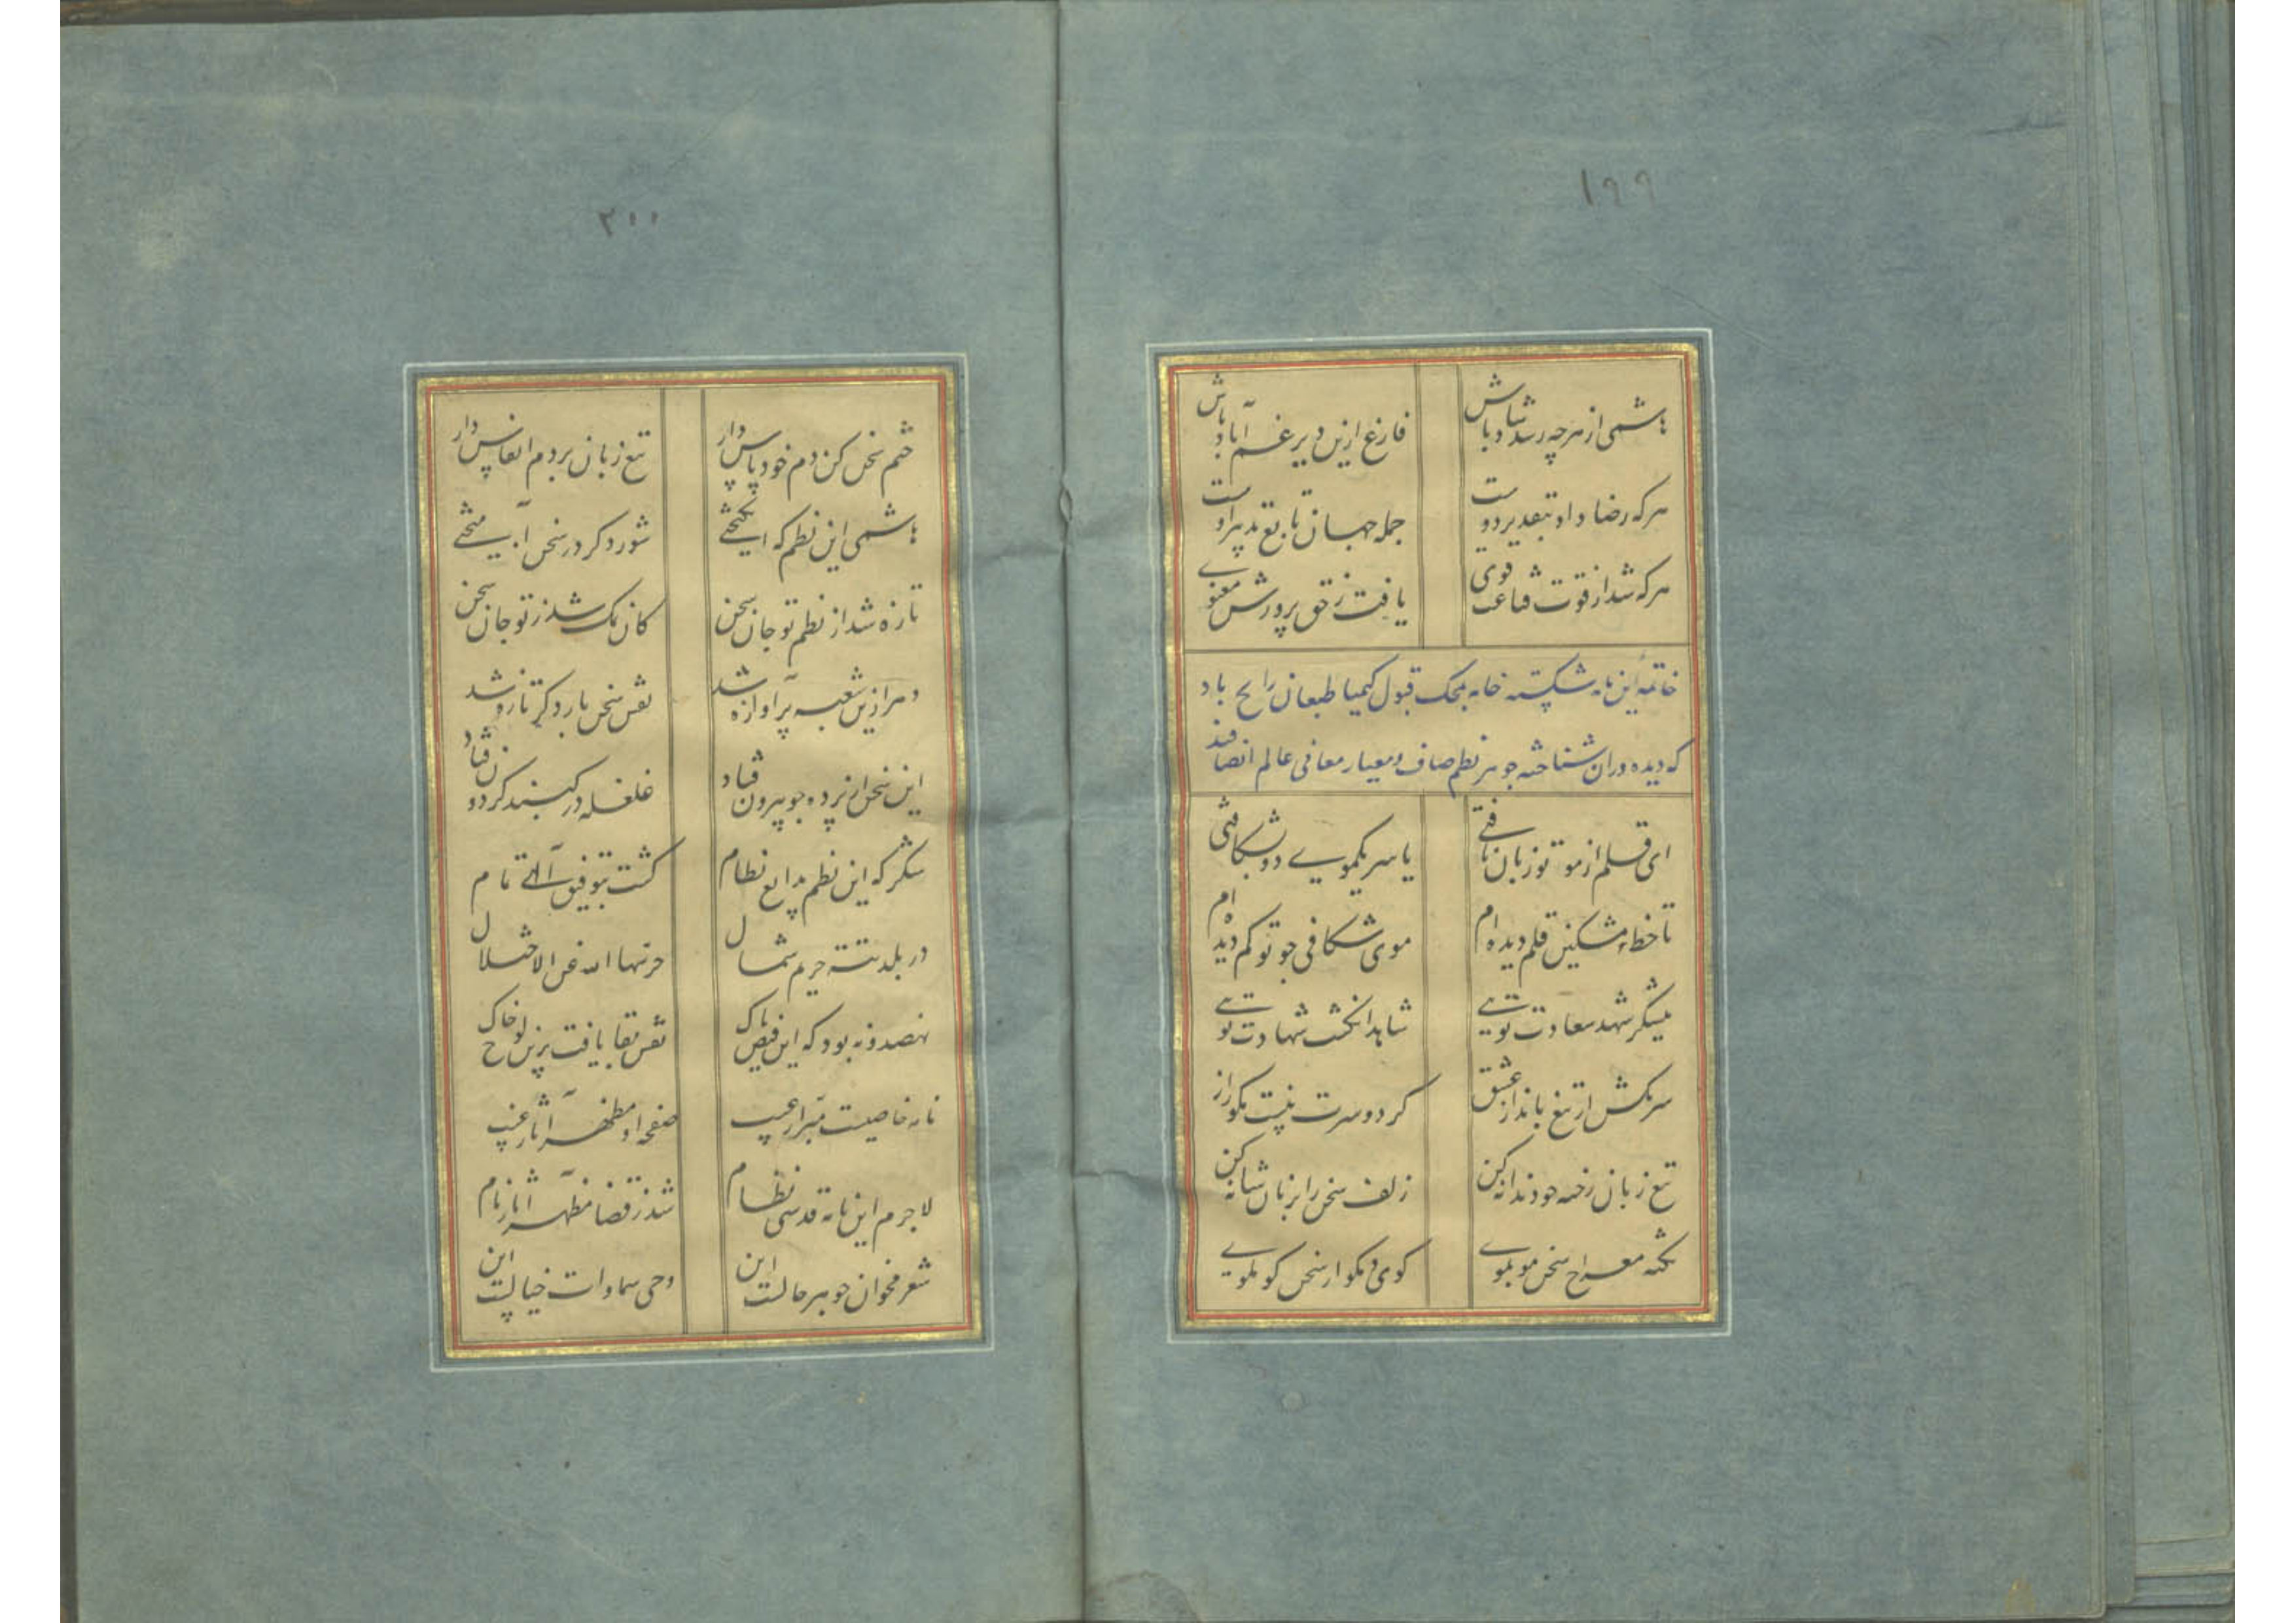 ١٩٩
هاشمی از هرچه رسد شاد باش فارغ ازین دیر غم آباد باش
هرکه رضا داد بتقدیر دوست جمله جهان تابع تدبیر اوست
هرکه شد از قوت قناعت قوی یافت ز حق پرورش معنوی
خاتمه این نامه شکسته خامه بمحک قبول کیمیا طبعان رایج باد
که دیده وران شناخته جوهر نظم صاف و معیار معانی عالم انصافند
ای قلم از مو تو زبان یافتی یا سر یکموی دو بشکافتی
تا خط مشکین قلم دیده ام موی شکافی چو تو کم دیده ام
نیشکر شهد سعادت توئی شاهد انگشت شهادت توئی
سر مکش از تیغ بانداز عشق کر دو سرت نیست مکو راز
تیغ زبان رخنه چو دندانه کن زلف سخن را بزبان شانه کن
نکته معراج سخن موبموی کوی و مکو از سخن کو بکوی
٢٠٠
ختم سخن کن دم خود پاس دار تیغ زبان بر دم انفاس دار
هاشمی این نظم که انکیختی شور دکر در سخن آمیختی
تازه شد از نظم تو جان سخن کان نمک شد ز تو جان سخن
دهر ازین شعبه پر آوازه شد نقش سخن بار دکر تازه شد
این سخن از پرده چو بیرون فتاد غلغله در کنبد کردون فتاد
شکر که این نظم بدایع نظام کشت بتوفیق آلهی تمام
در بلده تته حریم شمال حرسها الله عن الاختلال
نهصد و نه بود که این فیض پاک نقش بقا یافت برین لوح خاک
نامه خاصیت مبرا ز عیب صفحه او مظهر آثار غیب
لاجرم این نامه قدسی نظام شد ز قضا مظهر آثار نام
شعر مخوان جوهر حالست این وحی سماوات خیالست این